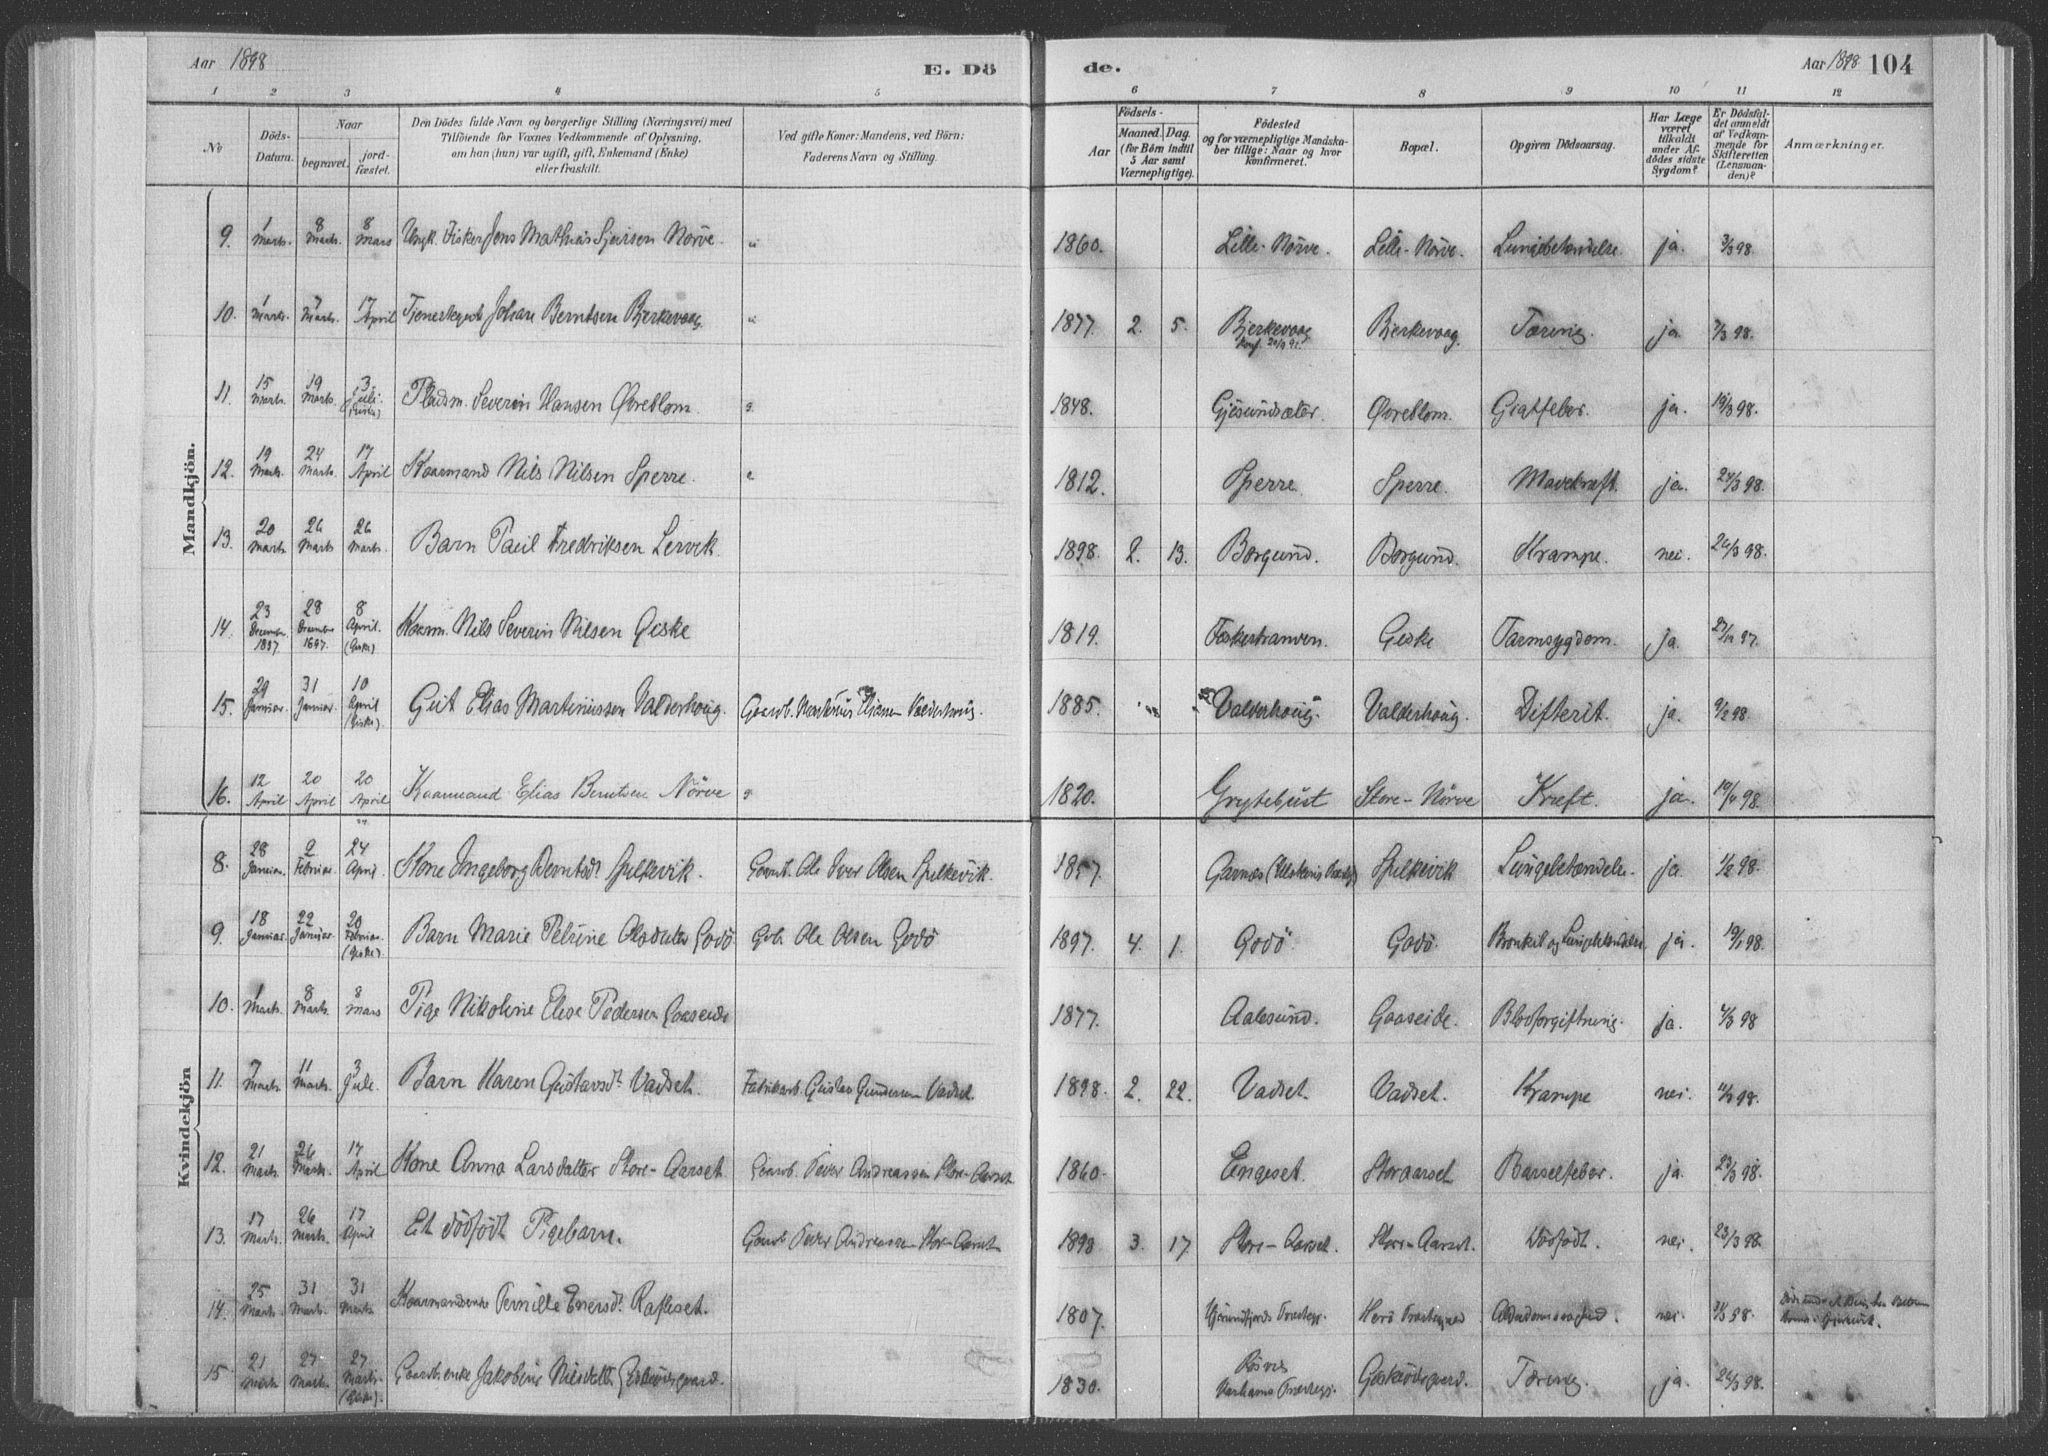 Aar 1898 E. Dö de. Aar 1898 104
1 2 3 4 5 6 7 8 9 10 11 12
No
Döds-Datum.
Naar
begravet.
jord-fæstet.
Den Dödes fulde Navn og borgerlige Stilling (Næringsvei) med
Tilföiende for Voxnes Vedkommende af Oplysning,
om han (hun) var ugift, gift, Enkemand (Enke)
eller fraskilt.
Ved gifte Koner: Mandens, ved Börn:
Faderens Navn og Stilling.
Födsels-
Aar
Maaned. Dag.
(for Börn indtil
5 Aar samt
Værnepligtige).
Födested
og for værnepligtige Mandska-
ber tillige: Naar og hvor
konfirmeret.
Bopæl.
Opgiven Dödsaarsag.
Har Læge
været
tilkaldt
under Af-
dödes sidste
Sygdom?
Er Dödsfal-
det anmeldt
af Vedkom-
mende for
Skifteretten
(Lensman-
den)?
Anmærkninger.
Mandkjön.
9. 1 Marts. 8 Marts. 8 Mars Ungk. Fisker Jens Mathias Sjursen Nörve. 1860. Lille-Nörve. Lille-Nörve. Lungebetændelse ja. 3/3 98.
10. 1 Marts. 7 Marts. 17 April Johan Berntsen Bjerkevaag. 1877. 2. 5. Bjerkevaag Bjerkevaag. Tæring. ja. 7/3 98.
11. 15 Marts. 19 Marts. 3 Juli Pladsm. Severin Hansen Øvreblom. 1848. Gjøsundsæter. Øvreblom. ja. 19/3 98.
12. 19 Marts. 24 Marts. 17 April Kaarmand Nils Nilsen Sperre. 1812. Sperre. Sperre. Mavekræft. ja. 24/3 98.
13. 20 Marts 26 Marts 26 Marts. Barn Paul Fredriksen Lervik. 1898. 2. 13. Borgund. Borgund. Krampe. nei. 26/3 98.
14. 23 December 1897. 28 December 1897. 8 April. (Giske) Kaarm. Nils Severin Nilsen Giske 1819. Giske Tarmsygdom. ja. 27/12 97.
15. 29 Januar. 31 Januar. 10 April (Giske) Gut Elias Martinussen Valderhoug. Gaardb. Martinus Eliasen Valderhoug. 1885. Valderhoug. Valderhoug. Difterit. ja. 9/2 98.
16. 12 April 20 April 20 April Kaarmand Elias Berntsen Nörve 1820. Grytebust Store-Nörve Kræft. ja. 19/4 98.
Kvindekjön
8. 28 Januar. 2 Februar. 24 April. Kone Ingeborg Berntsdt Spilkevik. Gaardb. Ole Iver Olsen Spilkevik. 1857. Spilkevik Lungebetændelse. ja. 1/2 98.
9. 18 Januar. 22 Januar. 20 Februar. (Giske) Barn Marie Petrine Olsdatter Godö. Gbr. Ole Olsen Godö 1897. 4. 1. Godö Godö. Bronkit og Lungebetændelse ja. 19/1 98.
10. 1 Marts. 8 Marts. 8 Mars Pige Nikoline Elise Pedersen Gaaseide 1877. Aalesund. Gaaseide. Blodforgiftning. ja. 4/3 98
11. 7 Marts. 11 Marts. 3 Juli. Barn Karen Gustavsdt Vadset. Fabrikarb. Gustav Gundersen Vadset. 1898. 2. 22. Vadset. Vadset. Krampe nei. 11/3 98.
12. 21 Marts. 26 Marts. 17 April Kone Anna Larsdatter Store-Aarset Gaardb. Peder Andreassen Store-Aarset 1860. Engeset. Storaarset Barselfeber. ja. 23/3 98.
13. 17 Marts. 26 Marts. 17 April Et dödfödt Pigebarn. Gaardb. Peder Andreassen Store-Aarset 1898 3. 17. Store-Aarset. Store-Aarset. Dödfödt. nei. 23/3 98.
14. 25 Marts. 31 Marts. 31 Marts. Kaarmandsenke Pernille Enersdt. Rafteset. 1807. Hjörundfjords Præstegj. Herö Præstegjeld Alderdomssvaghed. nei. 31/3 98.
15. 21 Marts 27 Marts. 27 Marts. (Giske). Gaardbr.enke Jakobine Nilsdatter 1830. Tæring. ja. 26/3 98.